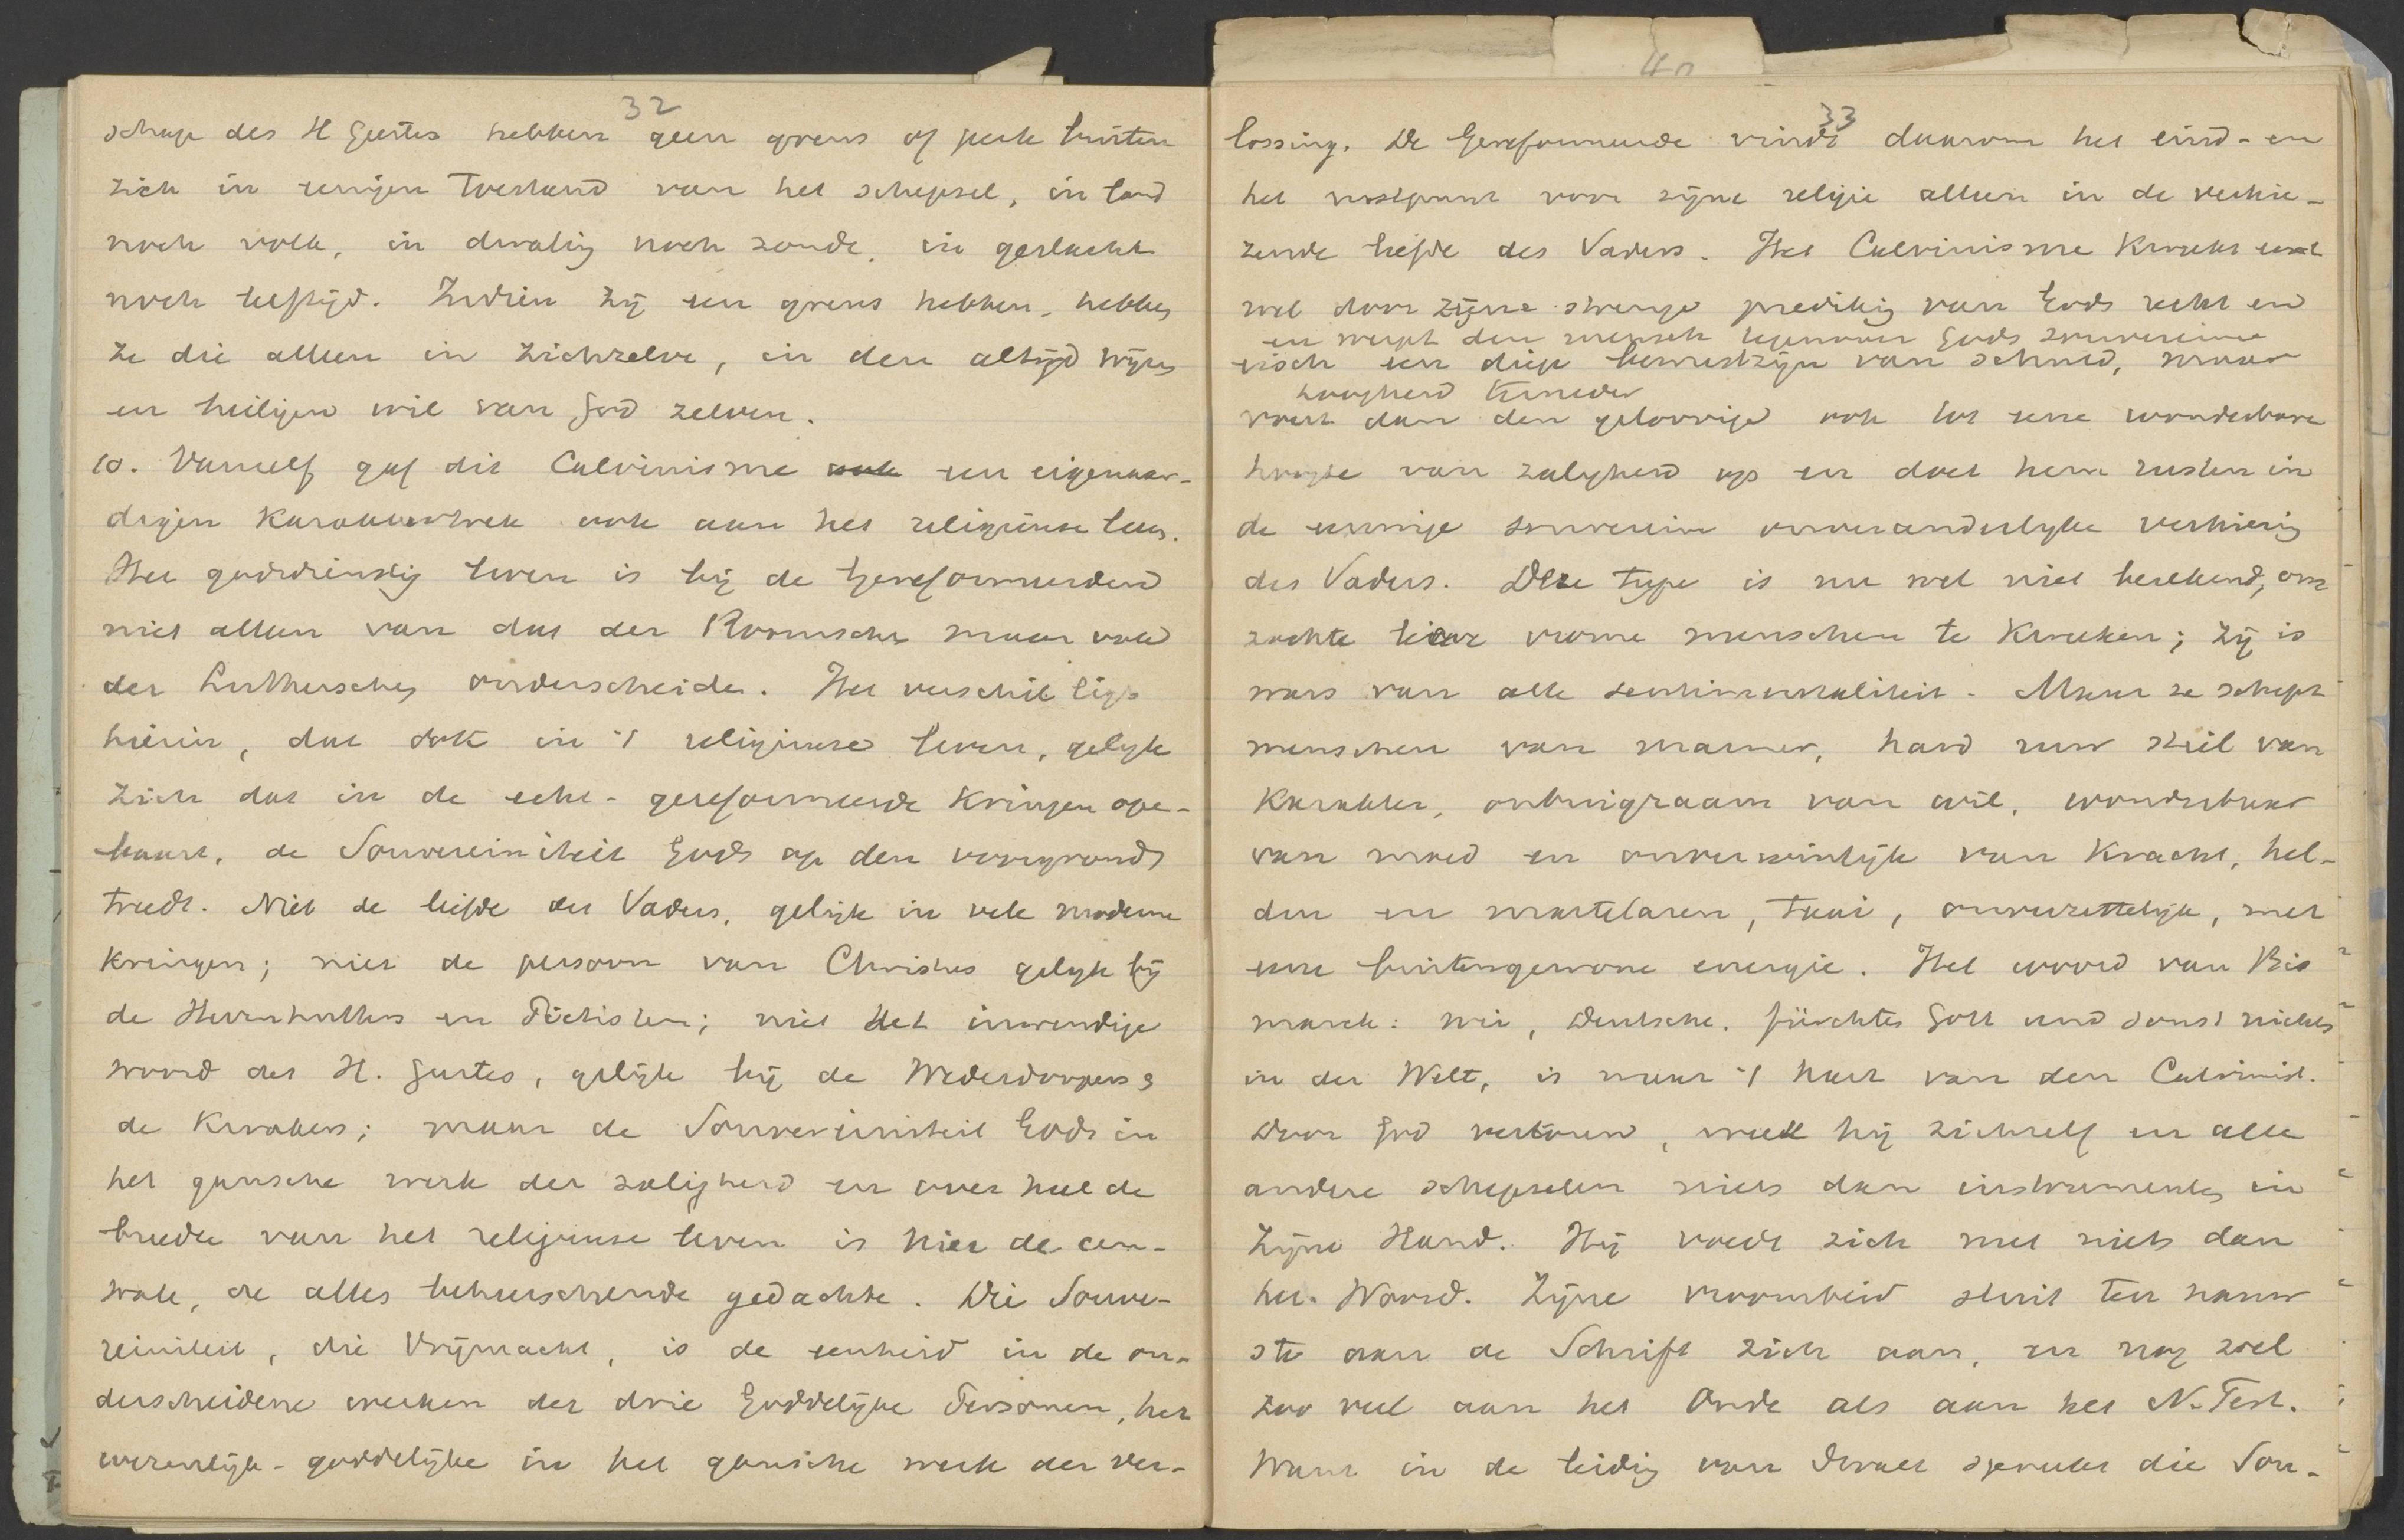 32
schap des H Geestes hebben geen grens of perk buiten
zich in eenigen toestand van het schepsel, in land
noch volk, in dwaling noch zonde, in geslacht
noch leeftijd. Indien zij een grens hebben, hebben
ze die alleen in zichzelve, in den altijd wijzen
en heiligen wil van God zelven.
10. Vanzelf gaf dit Calvinisme ook een eigenaar-
digen karaktertrek ook aan het religieuse leven.
Het godsdienstig leven is bij de Gereformeerden
niet alleen van dat der Roomsche maar ook
der Luthersche onderscheiden. Het verschil ligt
hierin, dat ook in 't religieuse leven, gelijk
zich dat in de echt-gereformeerde kringen open-
baart, de Souvereiniteit Gods op den voorgrond
treedt. Niet de liefde des Vaders, gelijk in vele moderne
kringen; niet de persoon van Christus gelijk bij
de Herrnhutters en Piëtisten; niet het inwendige
woord des H. Geestes, gelijk bij de Wederdoopers &
de Kwakers; maar de Souvereiniteit Gods in
het gansche werk der zaligheid en over heel de
breedte van het religieuse leven is hier de cen-
trale, de alles beheerschende gedachte. Die Souve-
reiniteit, die Vrijmacht, is de eenheid in de on-
derscheidene werken der drie Goddelijke Personen, het
wezenlijk-goddelijke in het gansche werk der ver-
40
33
lossing. De Gereformeerde vindt daarom het eind- en
het rustpunt voor zijne religie alleen in de verkie-
zende liefde des Vaders. Het Calvinisme kweekt eerst
wel door zijne strenge prediking van Gods recht en
en werpt den mensch tegenover Gods souvereine
eisch een diep bewustzijn van schuld, maar
hoogheid terneder
voert dan den geloovige ook tot eene wonderbare
hoogte van zaligheid op en doet hem rusten in
de eeuwige souverein onveranderlijke verkiezing
des Vaders. Deze type is nu wel niet berekend, om
zachte lieve vrome menschen te kweeken; zij is
wars van alle sentimentaliteit. Maar ze schept
menschen van marmer, hard ruw stiel van
karakter, onbuigzaam van wil, wonderbaar
van moed en onverwinlijk van kracht, hel-
den en martelaren, taai, onverzettelijk, met
eene buitengewone energie. Het woord van Bis
marck: wir, Deutsche, fürchten Gott und sonst nichts
in der Welt, is naar 't hart van den Calvinist.
Door God verkoren, weet hij zichzelf en alle
andere schepselen niets dan instrumenten in
Zijne Hand. Hij voedt zich met niets dan
het Woord. Zijne vroomheid sluit ten nauw
ste aan de Schrift zich aan, en nog wel
zoo veel aan het Oude als aan het N. Test.
Want in de leiding van Israel spreekt die Sou-